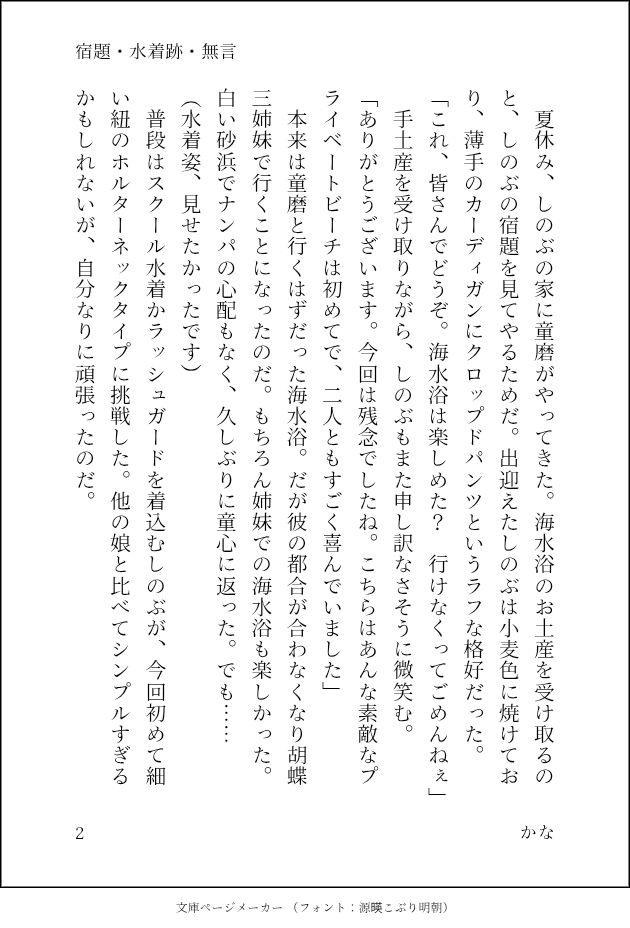 宿題・水着跡・無言
　夏休み、しのぶの家に童磨がやってきた。海水浴のお土産を受け取るの
と、しのぶの宿題を見てやるためだ。出迎えたしのぶは小麦色に焼けてお
り、薄手のカーディガンにクロップドパンツというラフな格好だった。
「これ、皆さんでどうぞ。海水浴は楽しめた？　行けなくってごめんねぇ」
　手土産を受け取りながら、しのぶもまた申し訳なさそうに微笑む。
「ありがとうございます。今回は残念でしたね。こちらはあんな素敵なプ
ライベートビーチは初めてで、二人ともすごく喜んでいました」
　本来は童磨と行くはずだった海水浴。だが彼の都合が合わなくなり胡蝶
三姉妹で行くことになったのだ。もちろん姉妹での海水浴も楽しかった。
白い砂浜でナンパの心配もなく、久しぶりに童心に返った。でも……
（水着姿、見せたかったです）
　普段はスクール水着かラッシュガードを着込むしのぶが、今回初めて細
い紐のホルターネックタイプに挑戦した。他の娘と比べてシンプルすぎる
かもしれないが、自分なりに頑張ったのだ。
2
かな
文庫ページメーカー（フォント：源暎こぶり明朝）